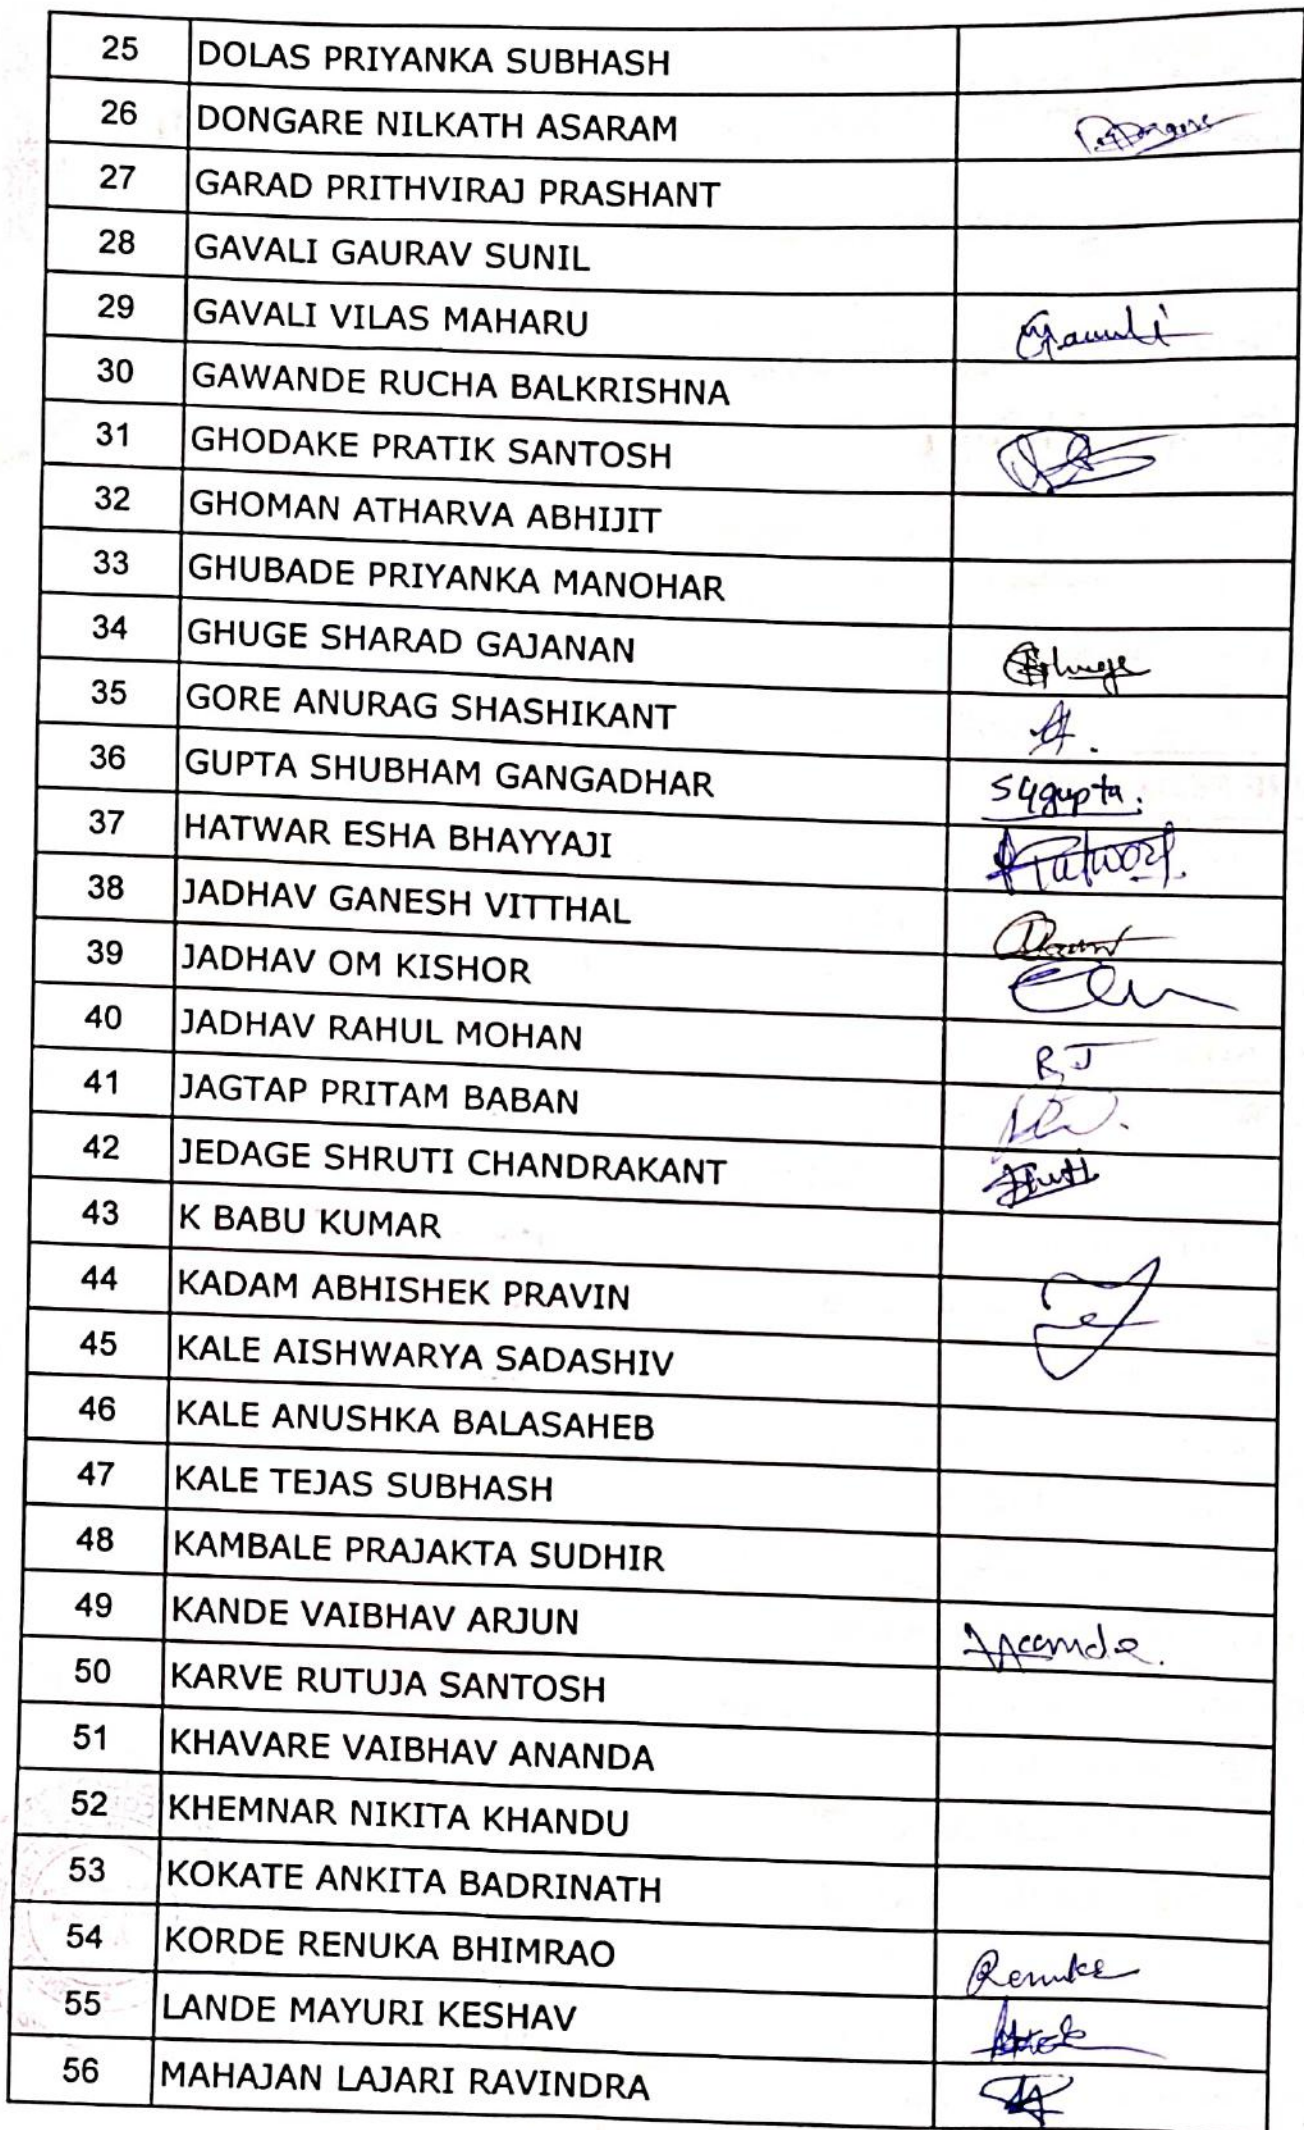 25 DOLAS PRIYANKA SUBHASH
26 DONGARE NILKATH ASARAM
27 GARAD PRITHVIRAJ PRASHANT
28 GAVALI GAURAV SUNIL
29 GAVALI VILAS MAHARU
30 GAWANDE RUCHA BALKRISHNA
31 GHODAKE PRATIK SANTOSH
32 GHOMAN ATHARVA ABHIJIT
33 GHUBADE PRIYANKA MANOHAR
34 GHUGE SHARAD GAJANAN
35 GORE ANURAG SHASHIKANT
36 GUPTA SHUBHAM GANGADHAR sggupta.
37 HATWAR ESHA BHAYYAJI
38 JADHAV GANESH VITTHAL
39 JADHAV OM KISHOR
40 JADHAV RAHUL MOHAN RJ
41 JAGTAP PRITAM BABAN
42 JEDAGE SHRUTI CHANDRAKANT
43 K BABU KUMAR
44 KADAM ABHISHEK PRAVIN
45 KALE AISHWARYA SADASHIV
46 KALE ANUSHKA BALASAHEB
47 KALE TEJAS SUBHASH
48 KAMBALE PRAJAKTA SUDHIR
49 KANDE VAIBHAV ARJUN
50 KARVE RUTUJA SANTOSH
51 KHAVARE VAIBHAV ANANDA
52 KHEMNAR NIKITA KHANDU
53 KOKATE ANKITA BADRINATH
54 KORDE RENUKA BHIMRAO
55 LANDE MAYURI KESHAV
56 MAHAJAN LAJARI RAVINDRA